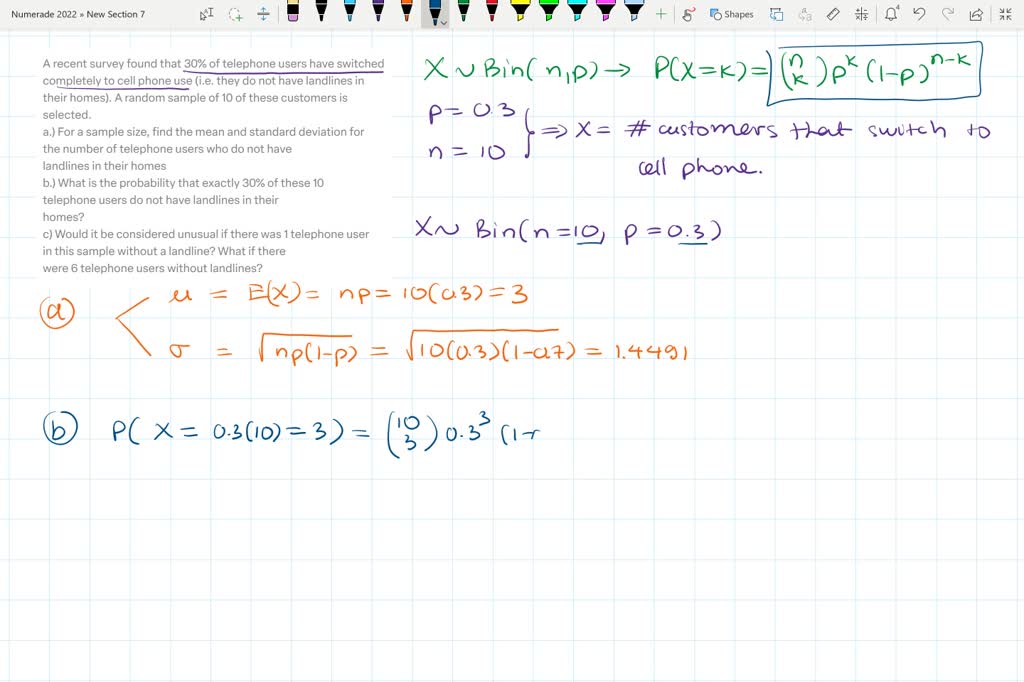 Numerade 2022 » New Section 7
Shapes
A recent survey found that 30% of telephone users have switched
completely to cell phone use (i.e. they do not have landlines in
their homes). A random sample of 10 of these customers is
selected.
a.) For a sample size, find the mean and standard deviation for
the number of telephone users who do not have
landlines in their homes
b.) What is the probability that exactly 30% of these 10
telephone users do not have landlines in their
homes?
c) Would it be considered unusual if there was 1 telephone user
in this sample without a landline? What if there
were 6 telephone users without landlines?
X ~ Bin(n,p) → P(X=K) = (n K) p^k (1-p)^n-k
p = 0.3
n = 10
⇒ X = # customers that switch to
cell phone.
X ~ Bin(n=10, p=0.3)
(a)
μ = E(X) = np = 10(0.3) = 3
σ = √np(1-p) = √10(0.3)(1-0.7) = 1.4491
(b) P( X = 0.3(10) = 3) = (10 3) 0.3^3 (1-